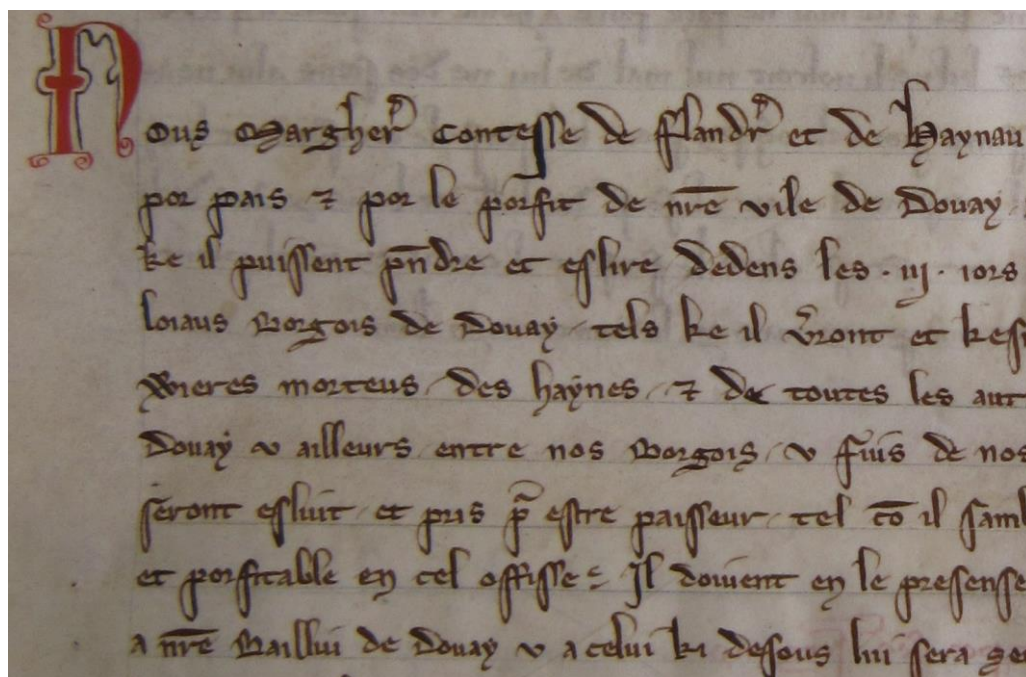 Nous Margher̕ Contesse de Flandr̕ et de Haynau
por pais ⁊ por le porfit de nr̄e vile de Douay
ke il puissent p̄ndre et eslire dedens les · iij · iors
loiaus Borgois de Douay tels ke il v̕ront et kesi
wieres morteus des haynes ⁊ de toutes les aut
Douay v ailleurs entre nos Borgois v fiuis de nos
seront esluit et pris p̄ estre paisseur tel cō il samb
et porfitable en cel offisse Il doiuent en le presense
a nr̄e Baillui de Douay v a celui ki desous lui sera